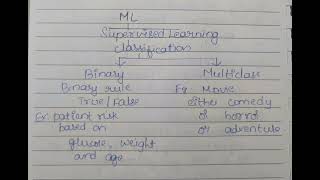 ML
Supervised Learning
classification
Binary Multiclass
Binary rule Eg Movie
True/False either comedy
Ex: patient risk or horror
based on or adventure
glucose, weight
and age